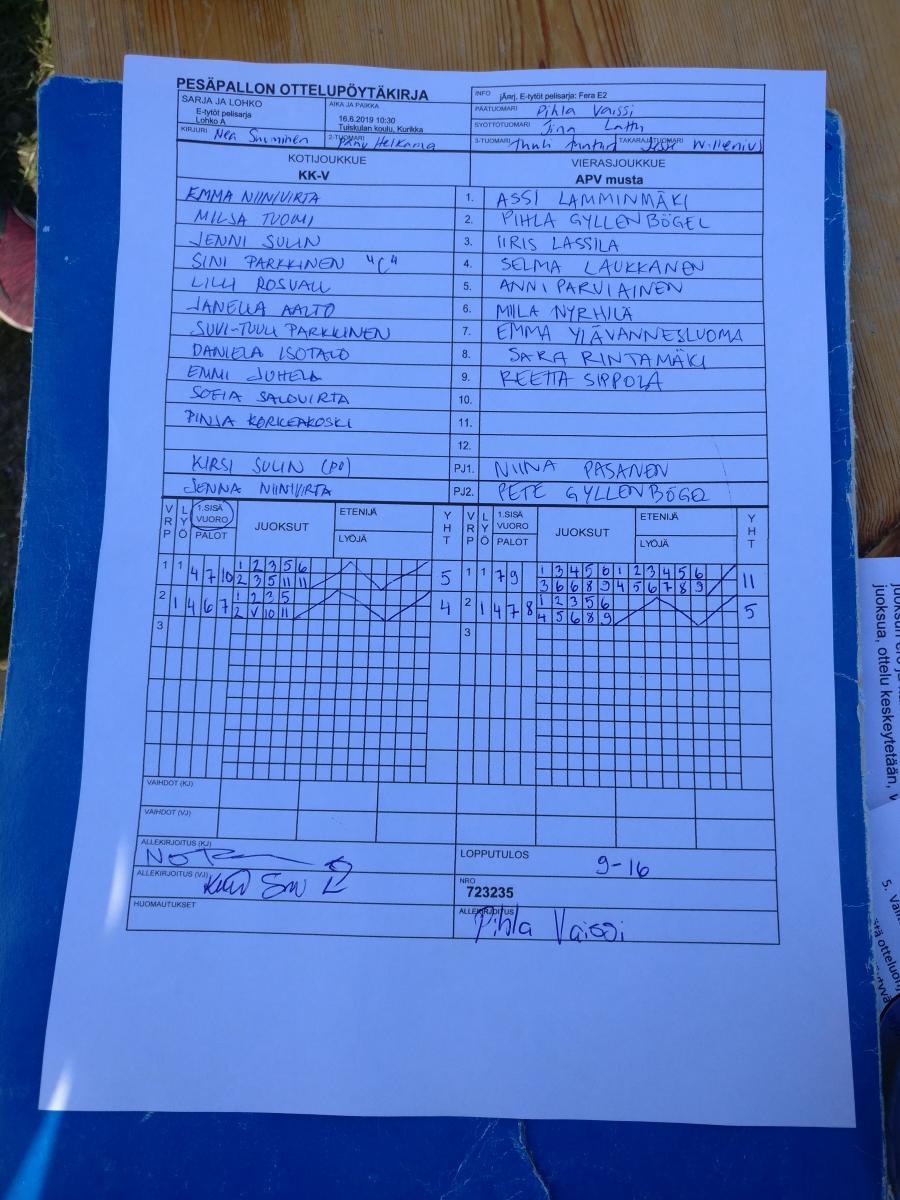 PESÄPALLON OTTELUPÖYTÄKIRJA
INFO järj. E-tytöt pelisarja: Fera E2
SARJA JA LOHKO
E-tytöt pelisarja
Lohko A
AIKA JA PAIKKA
16.6.2019 10:30
Tuiskulan koulu, Kurikka
PÄÄTUOMARI Pihla Vaissi
SYÖTTÖTUOMARI
KIRJURI Nea Suominen
2-TUOMARI Helkama
3-TUOMARI
TAKARAJATUOMARI Willenius
KOTIJOUKKUE
KK-V
VIERASJOUKKUE
APV musta
EMMA NIINIVIRTA 1. ASSI LAMMINMÄKI
MILJA TUOMI 2. PIHLA GYLLENBÖGEL
JENNI SULIN 3. IIRIS LASSILA
SINI PARKKINEN "C" 4. SELMA LAUKKANEN
LILLI ROSVALL 5. ANNI PARVIAINEN
JANELLA AALTO 6. MILA NYRHILÄ
SUVI-TUULI PARKKINEN 7. EMMA YLÄVANNESLUOMA
DANIELA ISOTALO 8. SARA RINTAMÄKI
EMMI JUHELA 9. REETTA SIPPOLA
SOFIA SALOVIRTA 10.
PINJA KORKEAKOSKI 11.
12.
KIRSI SULIN (PJ) PJ1. NIINA PASANEN
JENNA NIINIVIRTA PJ2. PETE GYLLENBÖGEL
VRP LYÖ 1.SISÄ VUORO PALOT JUOKSUT ETENIJÄ LYÖJÄ YHT VRP LYÖ 1.SISÄ VUORO PALOT JUOKSUT ETENIJÄ LYÖJÄ YHT
1 1 4 7 10 1 2 3 5 6 5 1 1 7 9 1 3 4 5 6 1 2 3 4 5 6 11
2 3 5 11 11 3 6 6 8 9 4 5 6 7 8 9
2 1 4 6 7 1 2 3 5 4 2 1 4 7 8 1 2 3 5 6 5
2 V 10 11 4 5 6 8 9
3 3
VAIHDOT (KJ)
VAIHDOT (VJ)
ALLEKIRJOITUS (KJ)
LOPPUTULOS 9-16
ALLEKIRJOITUS (VJ)
NRO
723235
HUOMAUTUKSET
ALLEKIRJOITUS
Pihla Vaissi
juoksua, ottelu keskeytetään,
5.